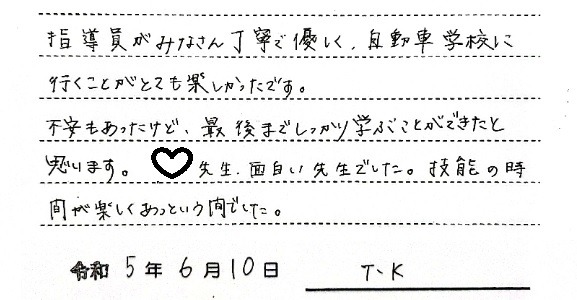 指導員がみなさん丁寧で優しく、自動車学校に
行くことがとても楽しかったです。
不安もあったけど、最後までしっかり学ぶことができたと
思います。 ♡先生、面白い先生でした。技能の時
間が楽しくあっという間でした。
令和 5年 6月10日 T、K